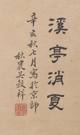 溪亭消夏
辛亥秋七月寫於京師
秋農吳穀祥